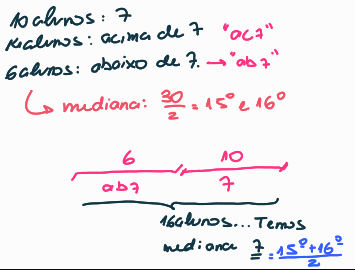 10 alunos: 7
14 alunos: acima de 7 "ac7"
6 alunos: abaixo de 7. → "ab7"
↳ mediana: 30/2 = 15º e 16º
6 10
ab7 7
16 alunos... Temos
mediana 7 = 15º+16º/2